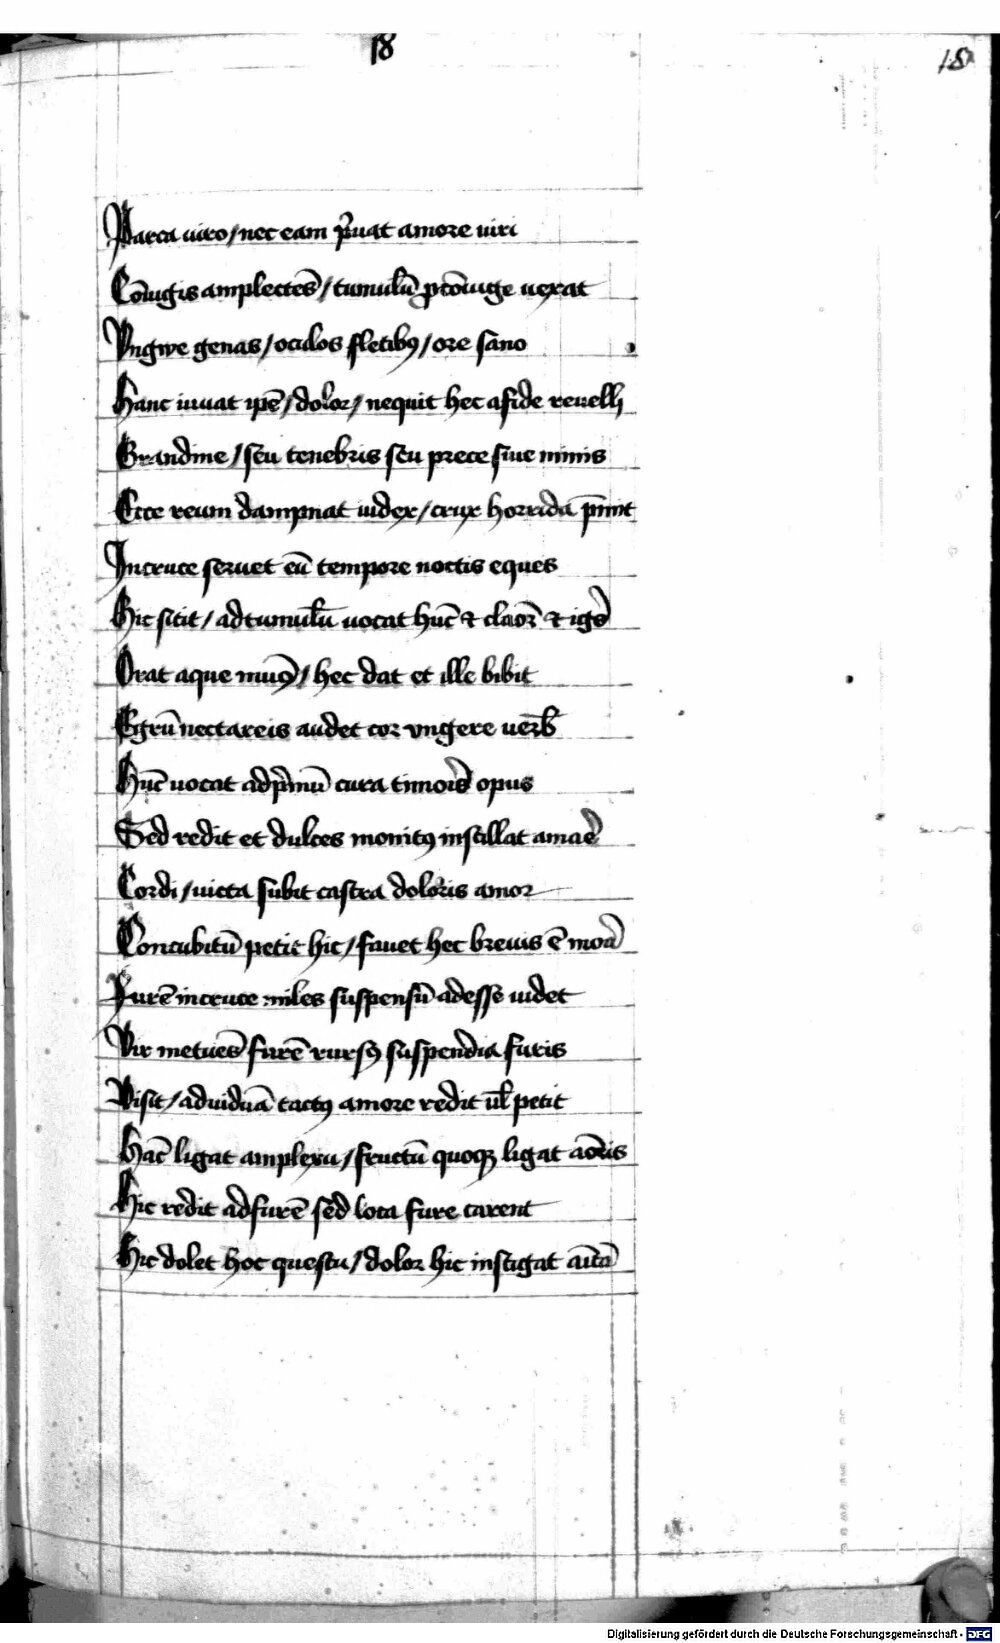 18
18
Parca uiro / nec eam p̄uat amore uiri
Cōiugis amplectēs / tumulū p cōiuge uexat
Vngwe genas / oculos fletibꝰ / ore sano
Hanc iuuat ip̄e / dolor / nequit hec a fide reuelli
Grandine / seu tenebris seu prece siue minis
Ecce reum dampnat iudex / crux horrida p̄mit
In cruce seruet eū tempore noctis eques
Hic sitit / ad tumulū uocat hūc & claor̄ & igē
Orat aque munꝰ / hec dat et ille bibit
Egrū nectareis audet cor vngere uerb̄
Hūc uocat ad p̄mū cura timorē opus
Sed redit et dulces monitꝰ instillat amaē
Cordi / uicta subit castra doloris amor
Concubitū petit hic / fauet hec breuis ē moā
Furē in cruce miles suspensū adesse uidet
Vir metuēs furē rursꝰ suspendia furis
Visit / ad uiduā tactꝰ amore redit ul̄ petit
Hāc ligat amplexu / fructū quoqꝫ ligat aōris
Hic redit ad furē sed loca fure carent
Hic dolet hoc questu / dolor hic instigat
Digitalisierung gefördert durch die Deutsche Forschungsgemeinschaft - DFG